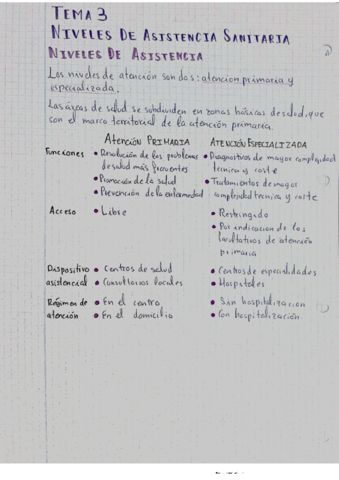 TEMA 3
NIVELES DE ASISTENCIA SANITARIA
NIVELES DE ASISTENCIA
Los niveles de atención son dos: atención primaria y
especializada.
Las áreas de salud se subdividen en zonas básicas de salud, que
son el marco territorial de la atención primaria.
ATENCIÓN PRIMARIA ATENCIÓN ESPECIALIZADA
Funciones • Resolución de los problemas • Diagnósticos de mayor complejidad
de salud más frecuentes técnica y coste
• Promoción de la salud • Tratamientos de mayor
• Prevención de la enfermedad complejidad técnica y coste
Acceso • Libre • Restringido
• Por indicación de los
facultativos de atención
primaria
Dispositivo • Centros de salud • Centros de especialidades
asistencial • Consultorios locales • Hospitales
Régimen de • En el centro • Sin hospitalización
atención • En el domicilio • Con hospitalización